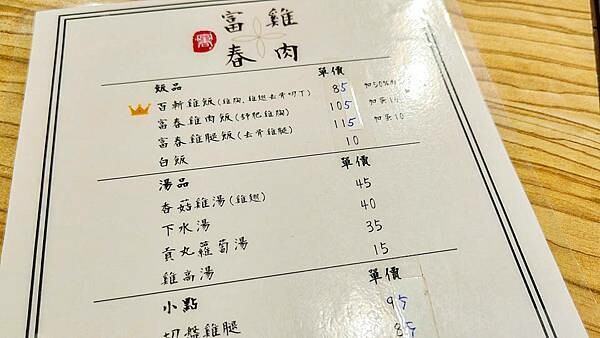 富春雞肉
飯品 單價
百斬雞飯(雞胸、雞翅去骨切丁) 85
富春雞肉飯(舒肥雞胸) 105
富春雞腿飯(去骨雞腿) 115 加蛋10
白飯 10
湯品 單價
香菇雞湯(雞翅) 45
下水湯 40
貢丸蘿蔔湯 35
雞高湯 15
小點 單價
切盤雞腿 95
85